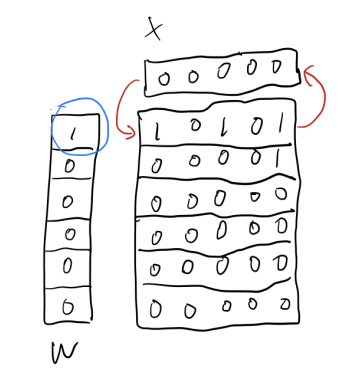 X
0 0 0 0 0
1 1 0 1 0 1
0 0 0 0 0 1
0 0 0 0 0 0
0 0 0 0 0 0
0 0 0 0 0 0
0 0 0 0 0 0
W